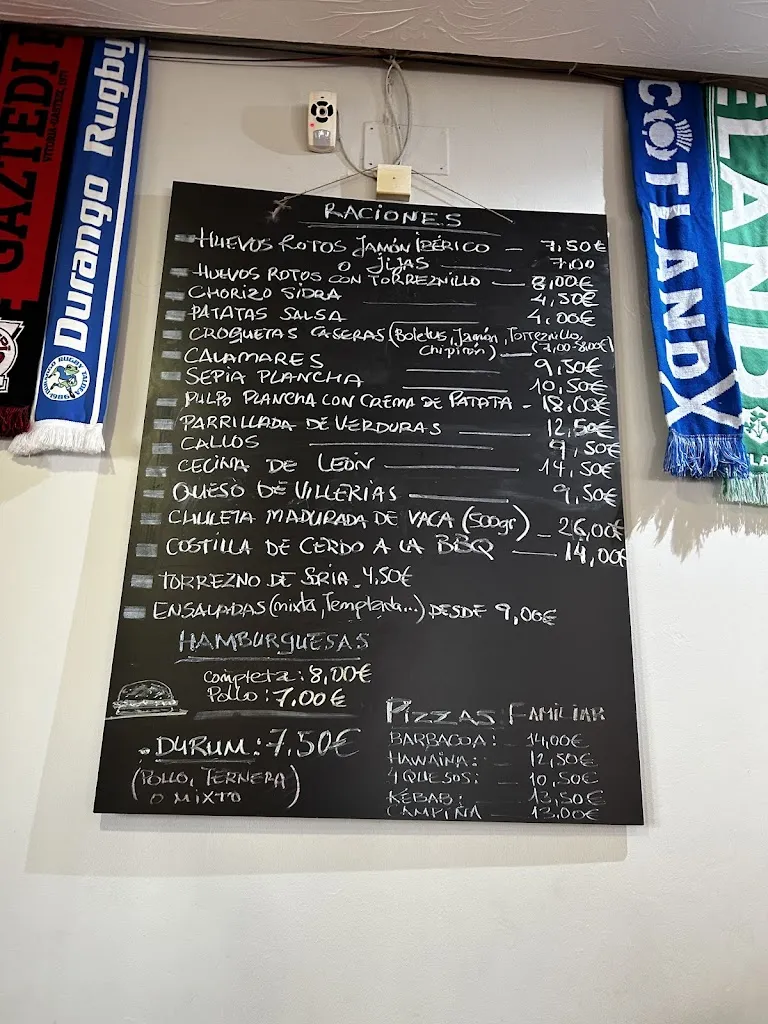 GAZTEDI
VITORIA-GASTEIZ, 1971
Durango Rugby
SCOTLAND
ELAND
RACIONES
HUEVOS ROTOS JAMÓN IBÉRICO — 7,50€
O JIJAS — 7,00
HUEVOS ROTOS CON TORREZNILLO — 8,00€
CHORIZO SIDRA — 4,50€
PATATAS SALSA 4,00€
CROQUETAS CASERAS (Boletus, Jamón, Torreznillo,
Chipirón) — (7,00-8,00€)
CALAMARES — 9,50€
SEPIA PLANCHA — 10,50€
PULPO PLANCHA CON CREMA DE PATATA - 18,00€
PARRILLADA DE VERDURAS — 12,50€
CALLOS — 9,50€
CECINA DE LEÓN — 14,50€
QUESO DE VILLERIAS — 9,50€
CHULETA MADURADA DE VACA (500gr) — 26,00€
COSTILLA DE CERDO A LA BBQ — 14,00€
TORREZNO DE SORIA - 4,50€
ENSALADAS (mixta, Templada...) DESDE 9,00€
HAMBURGUESAS
Completa: 8,00€
Pollo: 7,00€
- DURUM: 7,50€
(POLLO, TERNERA
O MIXTO)
PIZZAS FAMILIAR
BARBACOA: — 14,00€
HAWAINA: — 12,50€
4 QUESOS: — 10,50€
KEBAB: — 13,50€
CAMPIÑA — 13,00€